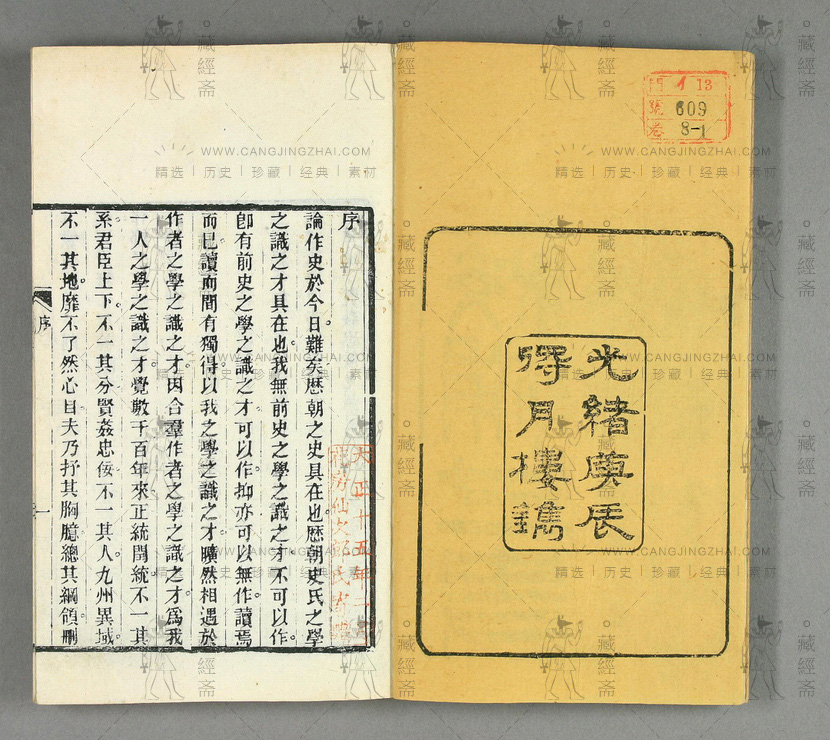 門 イ13
號 609
卷 8-1
光緒庚辰
得月樓鐫
序
論作史於今日難矣歷朝之史具在也歷朝史氏之學
之識之才具在也我無前史之學之識之才不可以作
卽有前史之學之識之才可以作抑亦可以無作讀焉
而已讀而間有獨得以我之學之識之才曠然相遇於
作者之學之識之才因合羣作者之學之識之才爲我
一人之學之識之才覺數千百年來正統閏統不一其
系君臣上下不一其分賢姦忠佞不一其人九州異域
不一其地靡不了然心目夫乃抒其胸臆總其綱領刪
序
一
大正十五年
藏經斋
WWW.CANGJINGZHAI.COM
精选｜历史｜珍藏｜经典｜素材